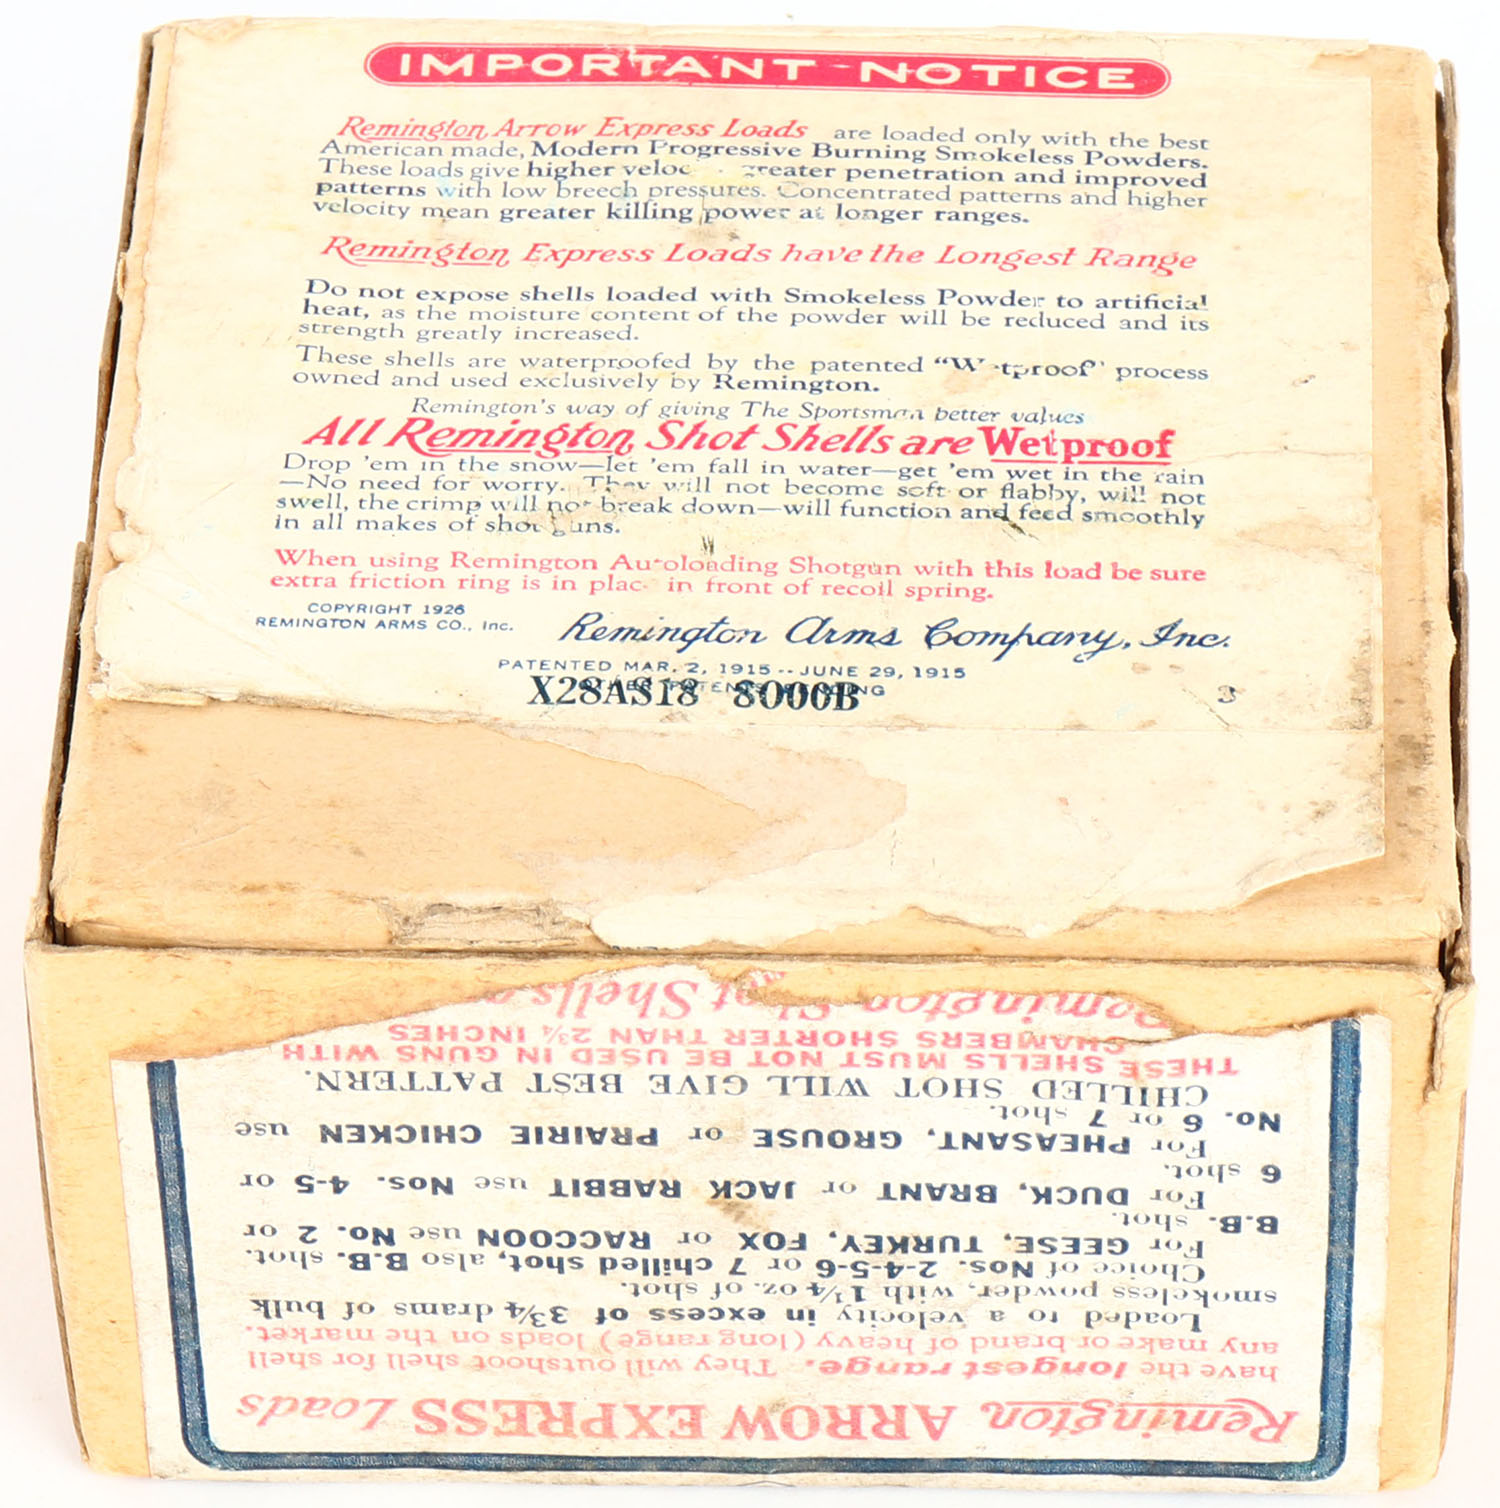 IMPORTANT NOTICE
Remington Arrow Express Loads are loaded only with the best
American made, Modern Progressive Burning Smokeless Powders.
These loads give higher veloc greater penetration and improved
patterns with low breech pressures. Concentrated patterns and higher
velocity mean greater killing power at longer ranges.
Remington Express Loads have the Longest Range
Do not expose shells loaded with Smokeless Powder to artificial
heat, as the moisture content of the powder will be reduced and its
strength greatly increased.
These shells are waterproofed by the patented "W tproof" process
owned and used exclusively by Remington.
Remington's way of giving The Sportsman better values
All Remington Shot Shells are Wetproof
Drop 'em in the snow—let 'em fall in water—get 'em wet in the rain
—No need for worry. They will not become soft or flabby, will not
swell, the crimp will not break down—will function and feed smoothly
in all makes of shot guns.
When using Remington Autoloading Shotgun with this load be sure
extra friction ring is in plac in front of recoil spring.
COPYRIGHT 1926
REMINGTON ARMS CO., Inc.
Remington Arms Company, Inc.
PATENTED MAR. 2, 1915 -- JUNE 29, 1915
OTHER PATENTS PENDING
X28AS18 8000B
3
Remington ARROW EXPRESS Loads
have the longest range. They will outshoot shell for shell
any make or brand of heavy (long range) loads on the market.
Loaded to a velocity in excess of 3¾ drams of bulk
smokeless powder, with 1¼ oz. of shot.
Choice of Nos. 2-4-5-6 or 7 chilled shot, also B.B. shot.
For GEESE, TURKEY, FOX or RACCOON use No. 2 or
B.B. shot.
For DUCK, BRANT or JACK RABBIT use Nos. 4-5 or
6 shot.
For PHEASANT, GROUSE or PRAIRIE CHICKEN use
No. 6 or 7 shot.
CHILLED SHOT WILL GIVE BEST PATTERN.
THESE SHELLS MUST NOT BE USED IN GUNS WITH
CHAMBERS SHORTER THAN 2¾ INCHES
Remington Shot Shells